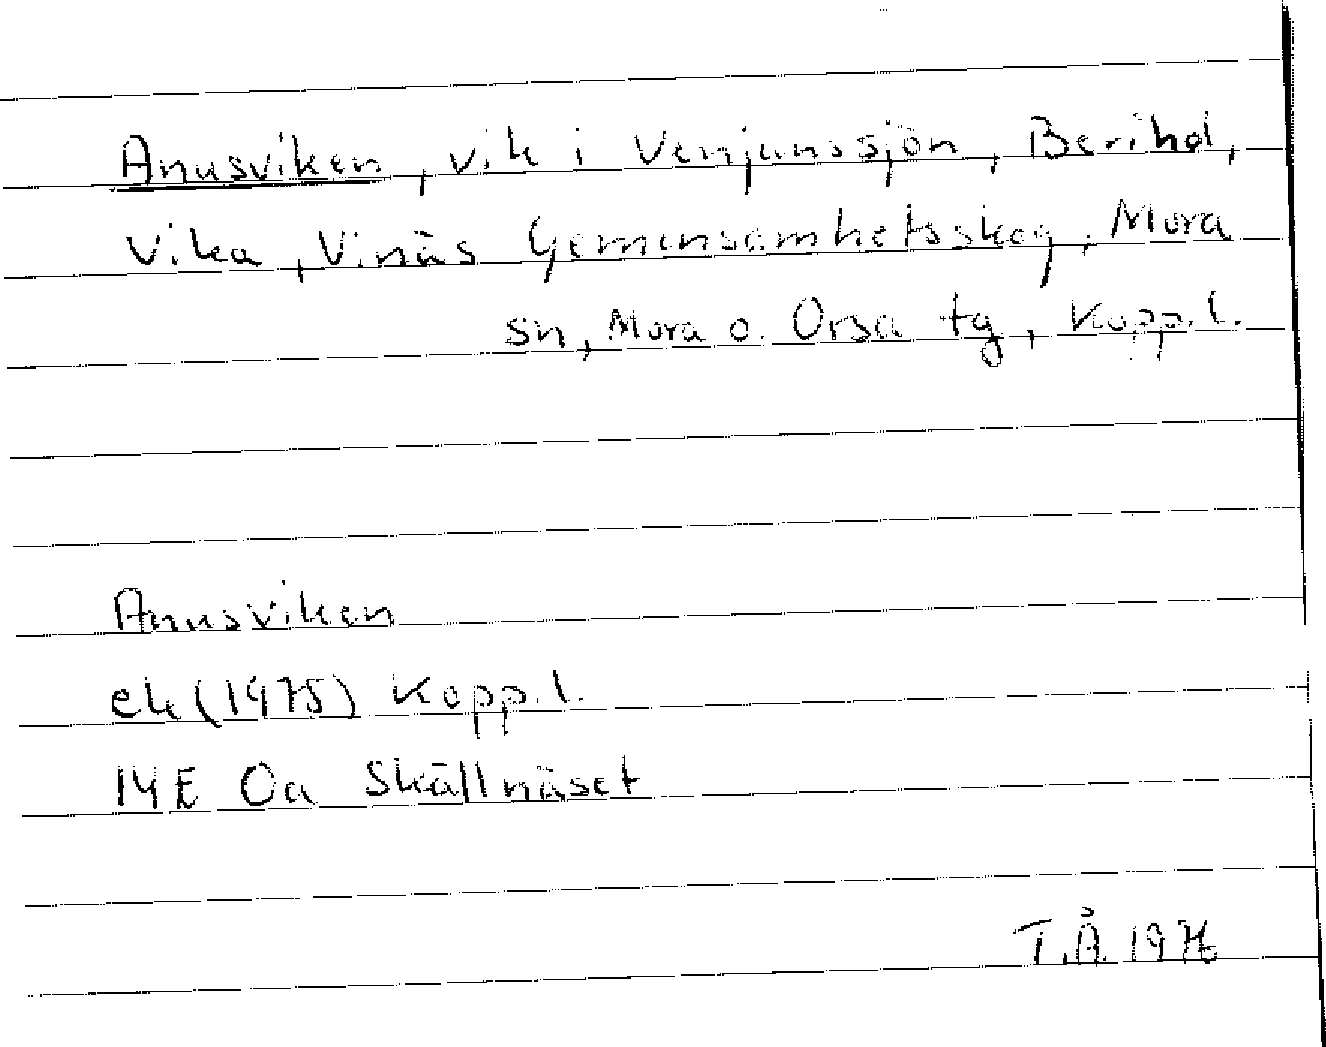 Anusviken, vik i Venjanssjön, Berihd,
Vika, Vinäs Gemensamhetsskog, Mora
sn, Mora o. Orsa tg, Kopp.l.
Anusviken
ek (1975) Kopp.l.
14E 0a Skällnäset
T.Å. 1976